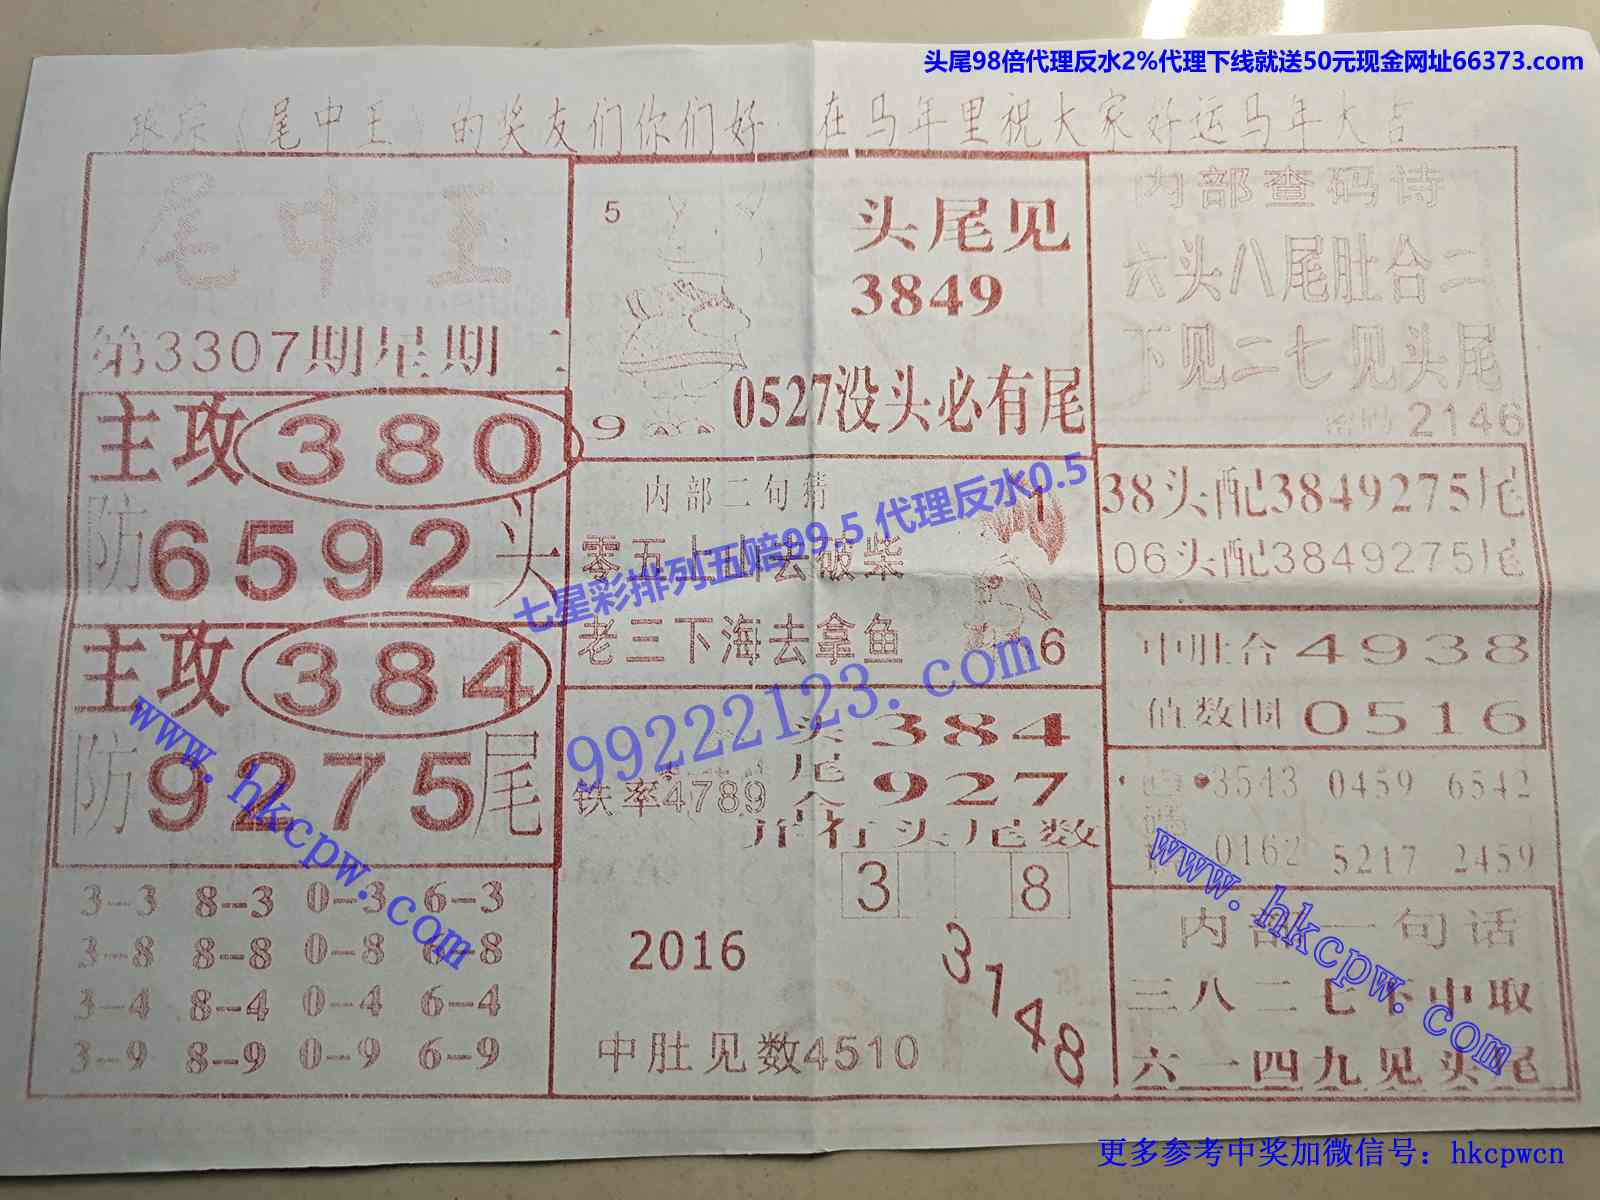 头尾98倍代理反水2%代理下线就送50元现金网址66373.com
（尾中王）的奖友们你们好 在马年里祝大家好运马年大吉
尾中王
第3307期星期二
主攻380
防6592头
主攻384
防9275尾
3--3 8--3 0--3 6--3
3--8 8--8 0--8 6--8
3--4 8--4 0--4 6--4
3--9 8--9 0--9 6--9
5
9
头尾见
3849
0527没头必有尾
内部二句猜
零五上山去破柴
老三下海去拿鱼
1
6
头尾合
384
927
铁率4789
头尾数
3 8
2016
3148
中肚见数4510
内部查码诗
六头八尾肚合二
下见二七见头尾
2146
38头配3849275尾
06头配3849275尾
中肚合4938
值数围0516
3543 0459 6542
0162 5217 2459
内部一句话
三八二七下中取
六一四九见头尾
七星彩排列五赔99.5 代理反水0.5
99222123.com
www.hkcpw.com
www.hkcpw.com
更多参考中奖加微信号：hkcpwcn